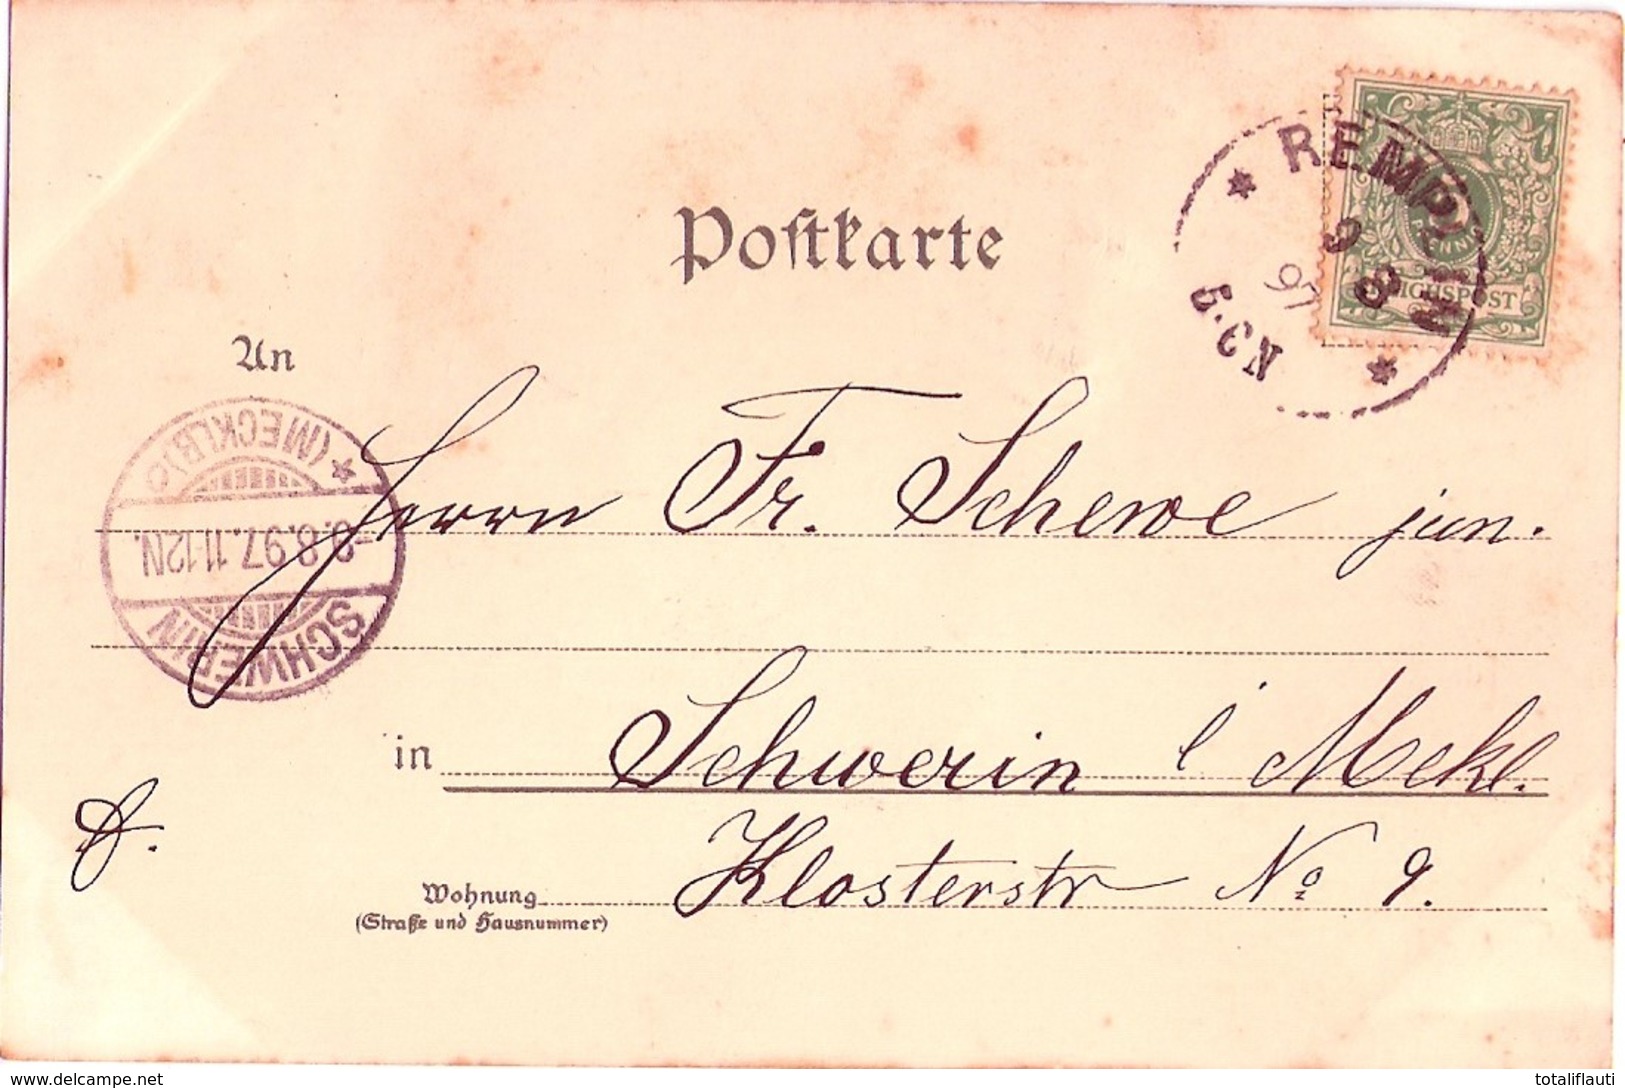 Postkarte
* REMPLIN *
9 8
97
5-6N
REICHSPOST
An
SCHWERIN
9.8.97.11-12N.
* (MECKLB)
Herrn Fr. Schewe jun.
in Schwerin i Meckl.
Wohnung Klosterstr No 9.
(Straße und Hausnummer)
www.delcampe.net
totaliflauti